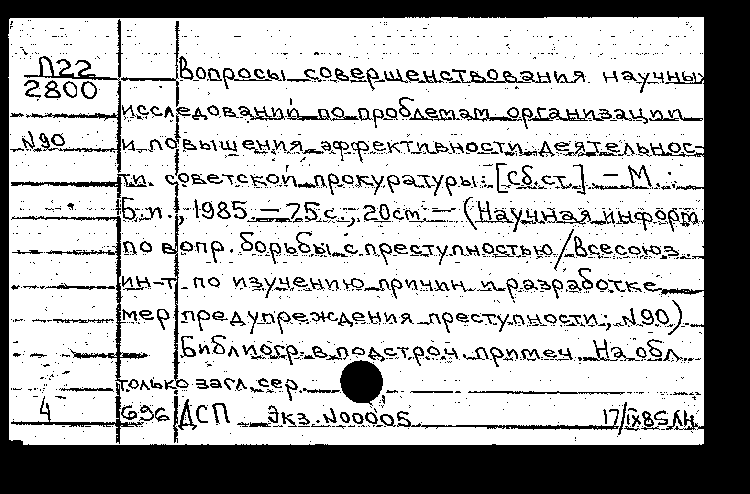 П22
2800
Вопросы совершенствования научных
исследований по проблемам организации
N90
и повышения эффективности деятельнос-
ти советской прокуратуры: [Сб.ст.] - М.:
Б.и., 1985. — 75с.; 20см. — (Научная информ
по вопр. борьбы с преступностью / Всесоюз.
ин-т по изучению причин и разработке
мер предупреждения преступности; N90)
Библиогр. в подстроч. примеч. На обл
только загл. сер.
4 696 ДСП Экз. N00005 17/IX85